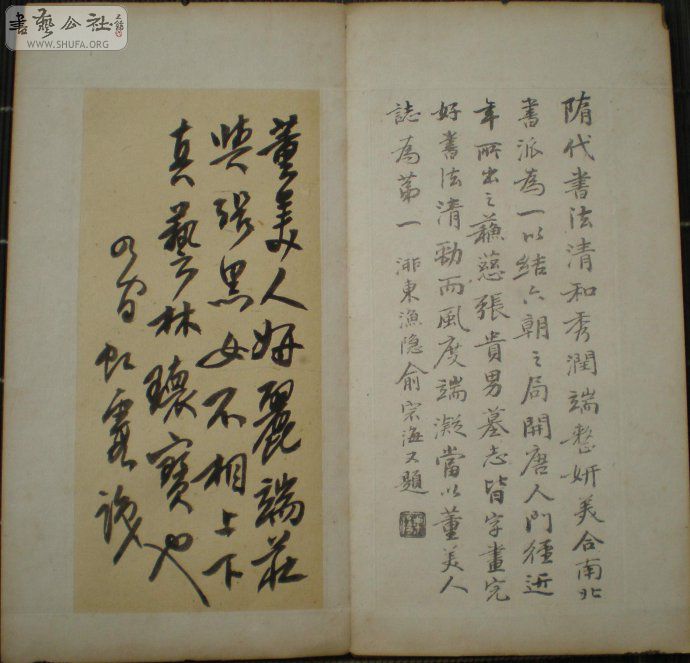 書藝公社
WWW.SHUFA.ORG
隋代書法清和秀潤端整妍美合南北
書派為一以結六朝之局開唐人門徑近
年所出之蘇慈張貴男墓志皆字畫完
好書法清勁而風度端凝當以董美人
誌為第一 湖東漁隱俞宗海又題
董美人妍麗端莊
與張黑女不相上下
真藝林瓌寶也